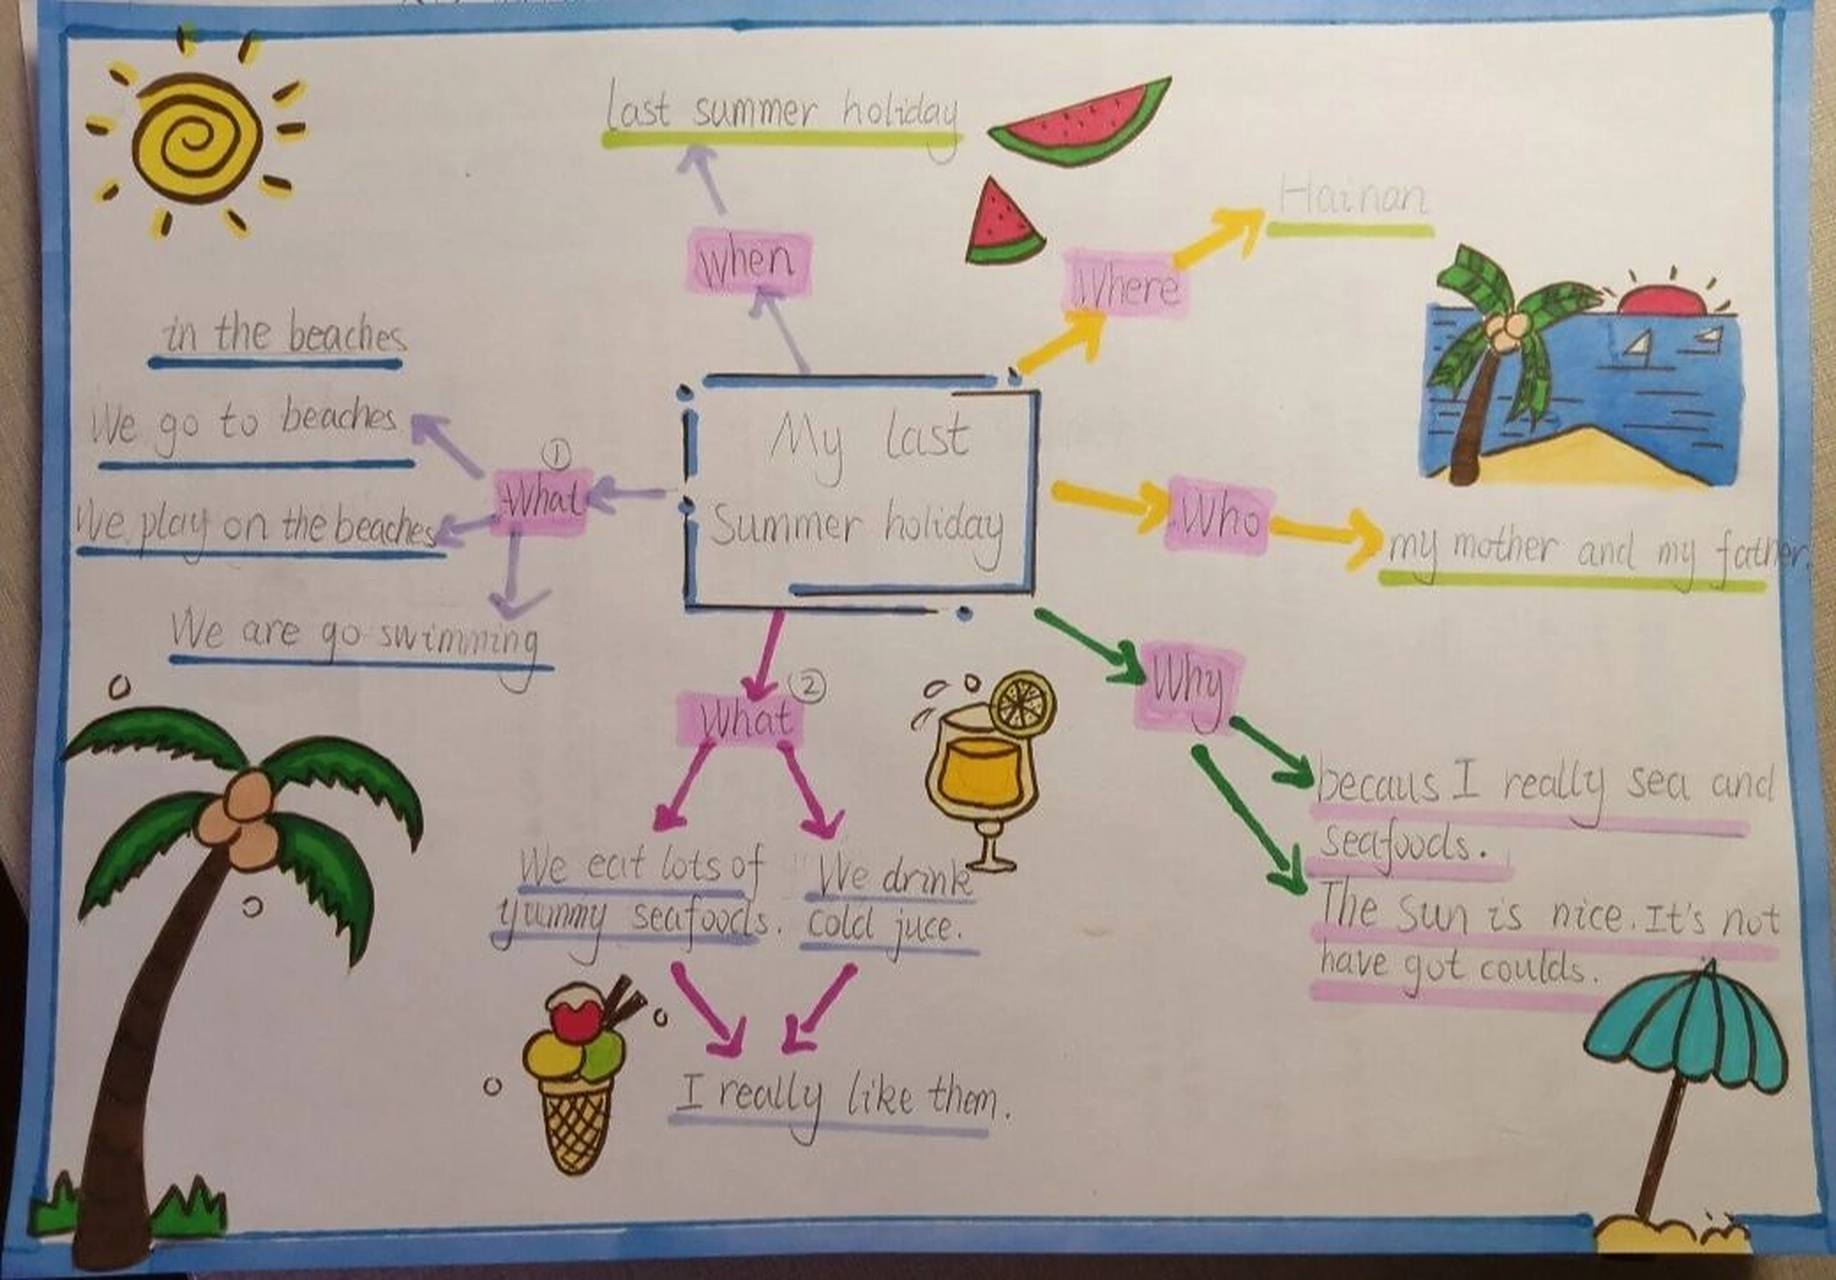 last summer holiday
when
Where
Hainan
My last
Summer holiday
①
What
in the beaches
We go to beaches
We play on the beaches
We are go swimming
Who
my mother and my father.
②
What
We eat lots of
yummy seafoods.
We drink
cold juce.
I really like them.
Why
becaus I really sea and
seafoods.
The sun is nice. It's not
have got coulds.